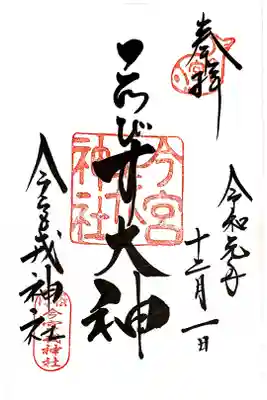 奉拝
令和元年
十二月一日
今宮
神社
ゑびす大神
今宮戎神社
今宮戎神社